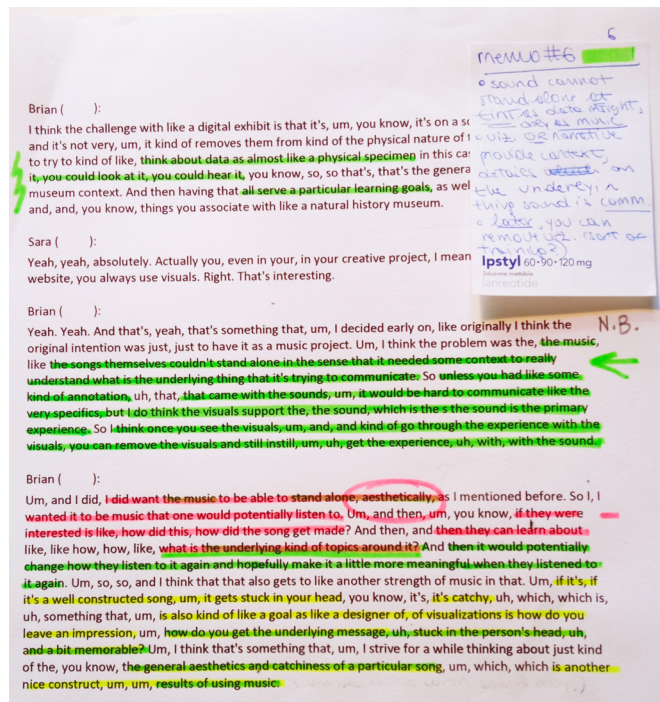 6
memo #6
• sound cannot
stand alone at
first as data insight,
only as music
• viz OR narrative
provide context,
details on
the underlyin
thing sound is comm.
• later, you can
remove viz. (sort of
training?)
Ipstyl 60•90•120 mg
Soluzione iniettabile
lanreotide
Brian ( ):
I think the challenge with like a digital exhibit is that it's, um, you know, it's on a sc
and it's not very, um, it kind of removes them from kind of the physical nature of t
to try to kind of like, think about data as almost like a physical specimen in this cas
it, you could look at it, you could hear it, you know, so, so that's, that's the genera
museum context. And then having that all serve a particular learning goals, as wel
and, and, you know, things you associate with like a natural history museum.
Sara ( ):
Yeah, yeah, absolutely. Actually you, even in your, in your creative project, I mean
website, you always use visuals. Right. That's interesting.
Brian ( ):
Yeah. Yeah. And that's, yeah, that's something that, um, I decided early on, like originally I think the
N.B.
original intention was just, just to have it as a music project. Um, I think the problem was the, the music,
like the songs themselves couldn't stand alone in the sense that it needed some context to really
understand what is the underlying thing that it's trying to communicate. So unless you had like some
kind of annotation, uh, that, that came with the sounds, um, it would be hard to communicate like the
very specifics, but I do think the visuals support the, the sound, which is the s the sound is the primary
experience. So I think once you see the visuals, um, and, and kind of go through the experience with the
visuals, you can remove the visuals and still instill, um, uh, get the experience, uh, with, with the sound.
Brian ( ):
Um, and I did, I did want the music to be able to stand alone, aesthetically, as I mentioned before. So I, I
wanted it to be music that one would potentially listen to. Um, and then, um, you know, if they were
interested is like, how did this, how did the song get made? And then, and then they can learn about
like, like how, how, like, what is the underlying kind of topics around it? And then it would potentially
change how they listen to it again and hopefully make it a little more meaningful when they listened to
it again. Um, so, so, and I think that that also gets to like another strength of music in that. Um, if it's, if
it's a well constructed song, um, it gets stuck in your head, you know, it's, it's catchy, uh, which, which is,
uh, something that, um, is also kind of like a goal as like a designer of, of visualizations is how do you
leave an impression, um, how do you get the underlying message, uh, stuck in the person's head, uh,
and a bit memorable? Um, I think that's something that, um, I strive for a while thinking about just kind
of the, you know, the general aesthetics and catchiness of a particular song, um, which, which is another
nice construct, um, um, results of using music.